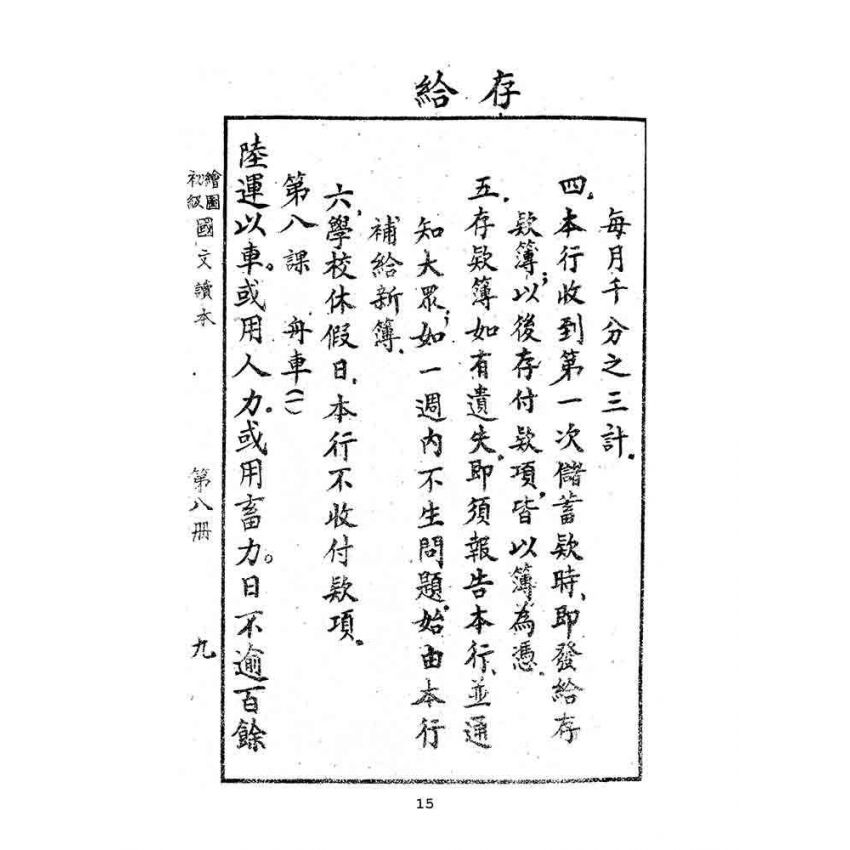 存給
每月千分之三計.
四.本行收到第一次儲蓄欵時,即發給存
欵簿;以後存付欵項,皆以簿為憑.
五.存欵簿如有遺失.即須報告本行,並通
知大眾;如一週內不生問題.始由本行
補給新簿.
六,學校休假日,本行不收付欵項.
第八課 舟車(一)
陸運以車。或用人力.或用畜力。日不逾百餘
繪圖
初級
國文讀本
第八册
九
15